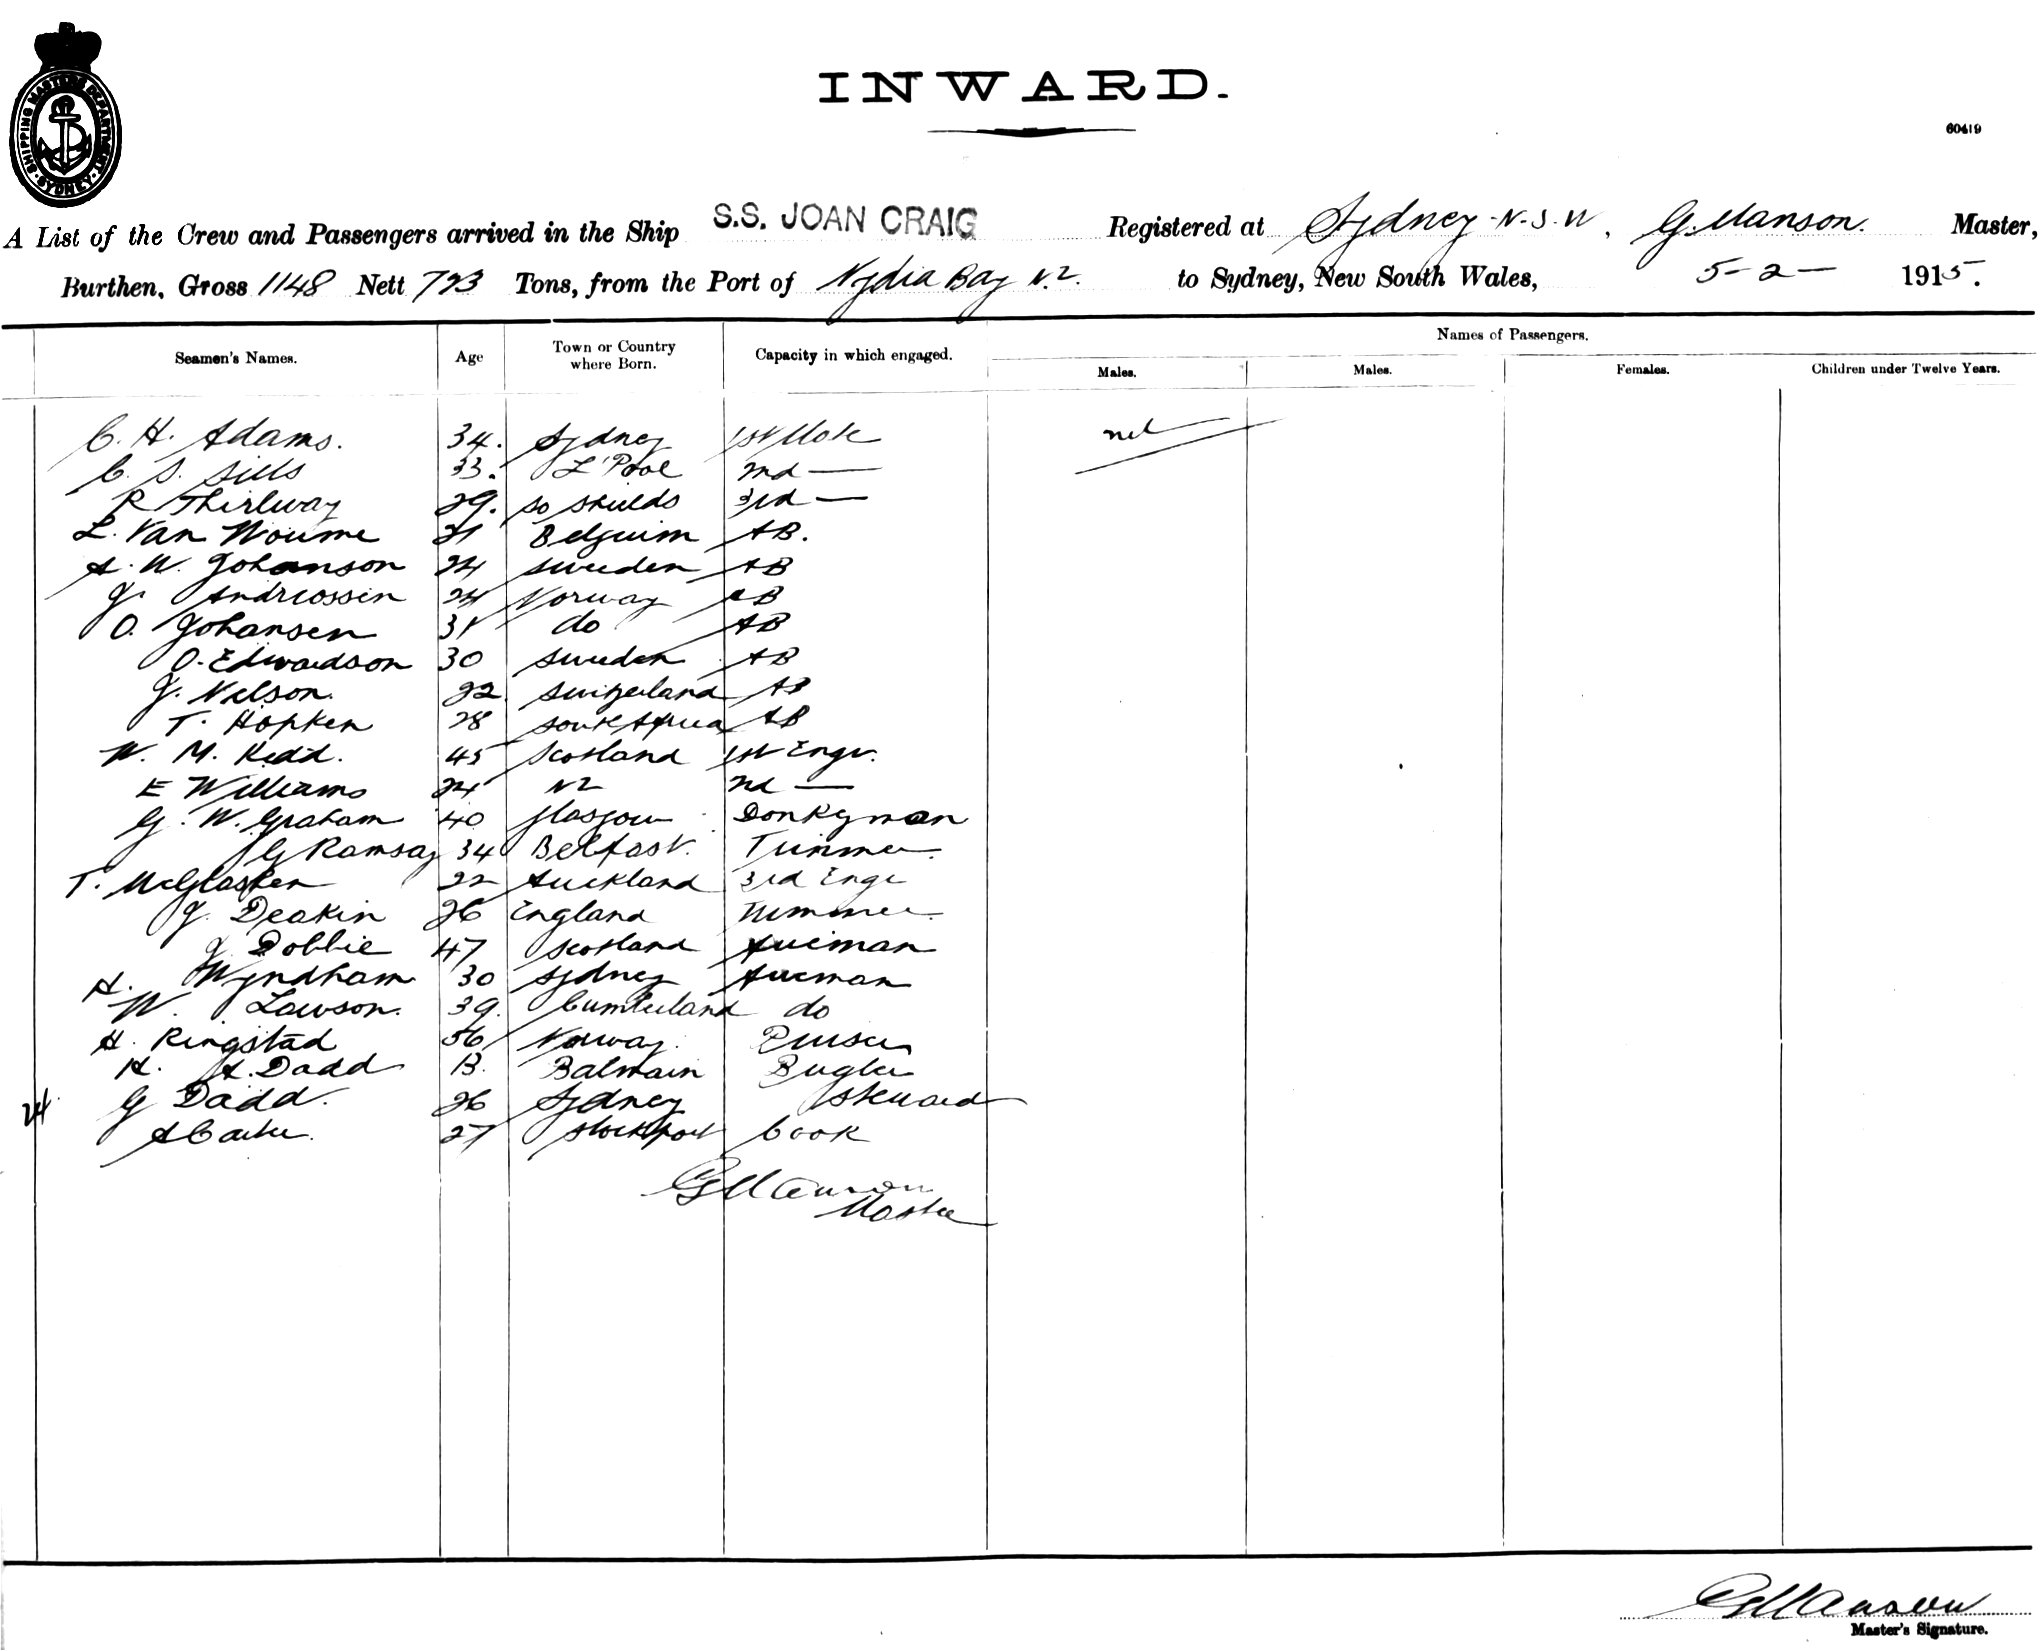 SHIPPING MASTERS DEPARTMENT SYDNEY
INWARD.
60419
A List of the Crew and Passengers arrived in the Ship S.S. JOAN CRAIG Registered at Sydney N.S.W, G. Manson. Master,
Burthen, Gross 1148 Nett 723 Tons, from the Port of Nydia Bay N.Z. to Sydney, New South Wales, 5-2- 1915.
Names of Passengers.
Seamen's Names. Age Town or Country where Born. Capacity in which engaged. Males. Males. Females. Children under Twelve Years.
C. H. Adams. 34. Sydney 1st Mate nil
C. S. Sills 33. L'Pool 2nd —
R Thirlway 29. So Shields 3rd —
L. Van Woume 21 Belguim AB.
A. W. Johanson 24 Sweden AB
J. Andreossen 24 Norway AB
O. Johansen 31 do AB
O. Edwardson 30 Sweden AB
J. Nelson. 22 Switzerland AB
T. Hopken 28 South Africa AB
W. M. Kidd. 45 Scotland 1st Engr.
E Williams 24 NZ 2nd —
G. W. Graham 40 Glasgow Donkyman
G Ramsay 34 Belfast. Trimmer.
T. McGlashen 22 Auckland 3rd Engr
J. Deakin 26 England Trimmer.
J Dobbie 47 Scotland Fireman
H. Wyndham 30 Sydney Fireman
W. Lawson. 39. Cumberland do
H. Ringstad 56 Norway. Purser
H. A. Dadd B. Balmain Bugler
24. G Dadd. 26 Sydney Steward
A Carter. 27 Stockport Cook
G Manson
Master
G Manson
Master's Signature.